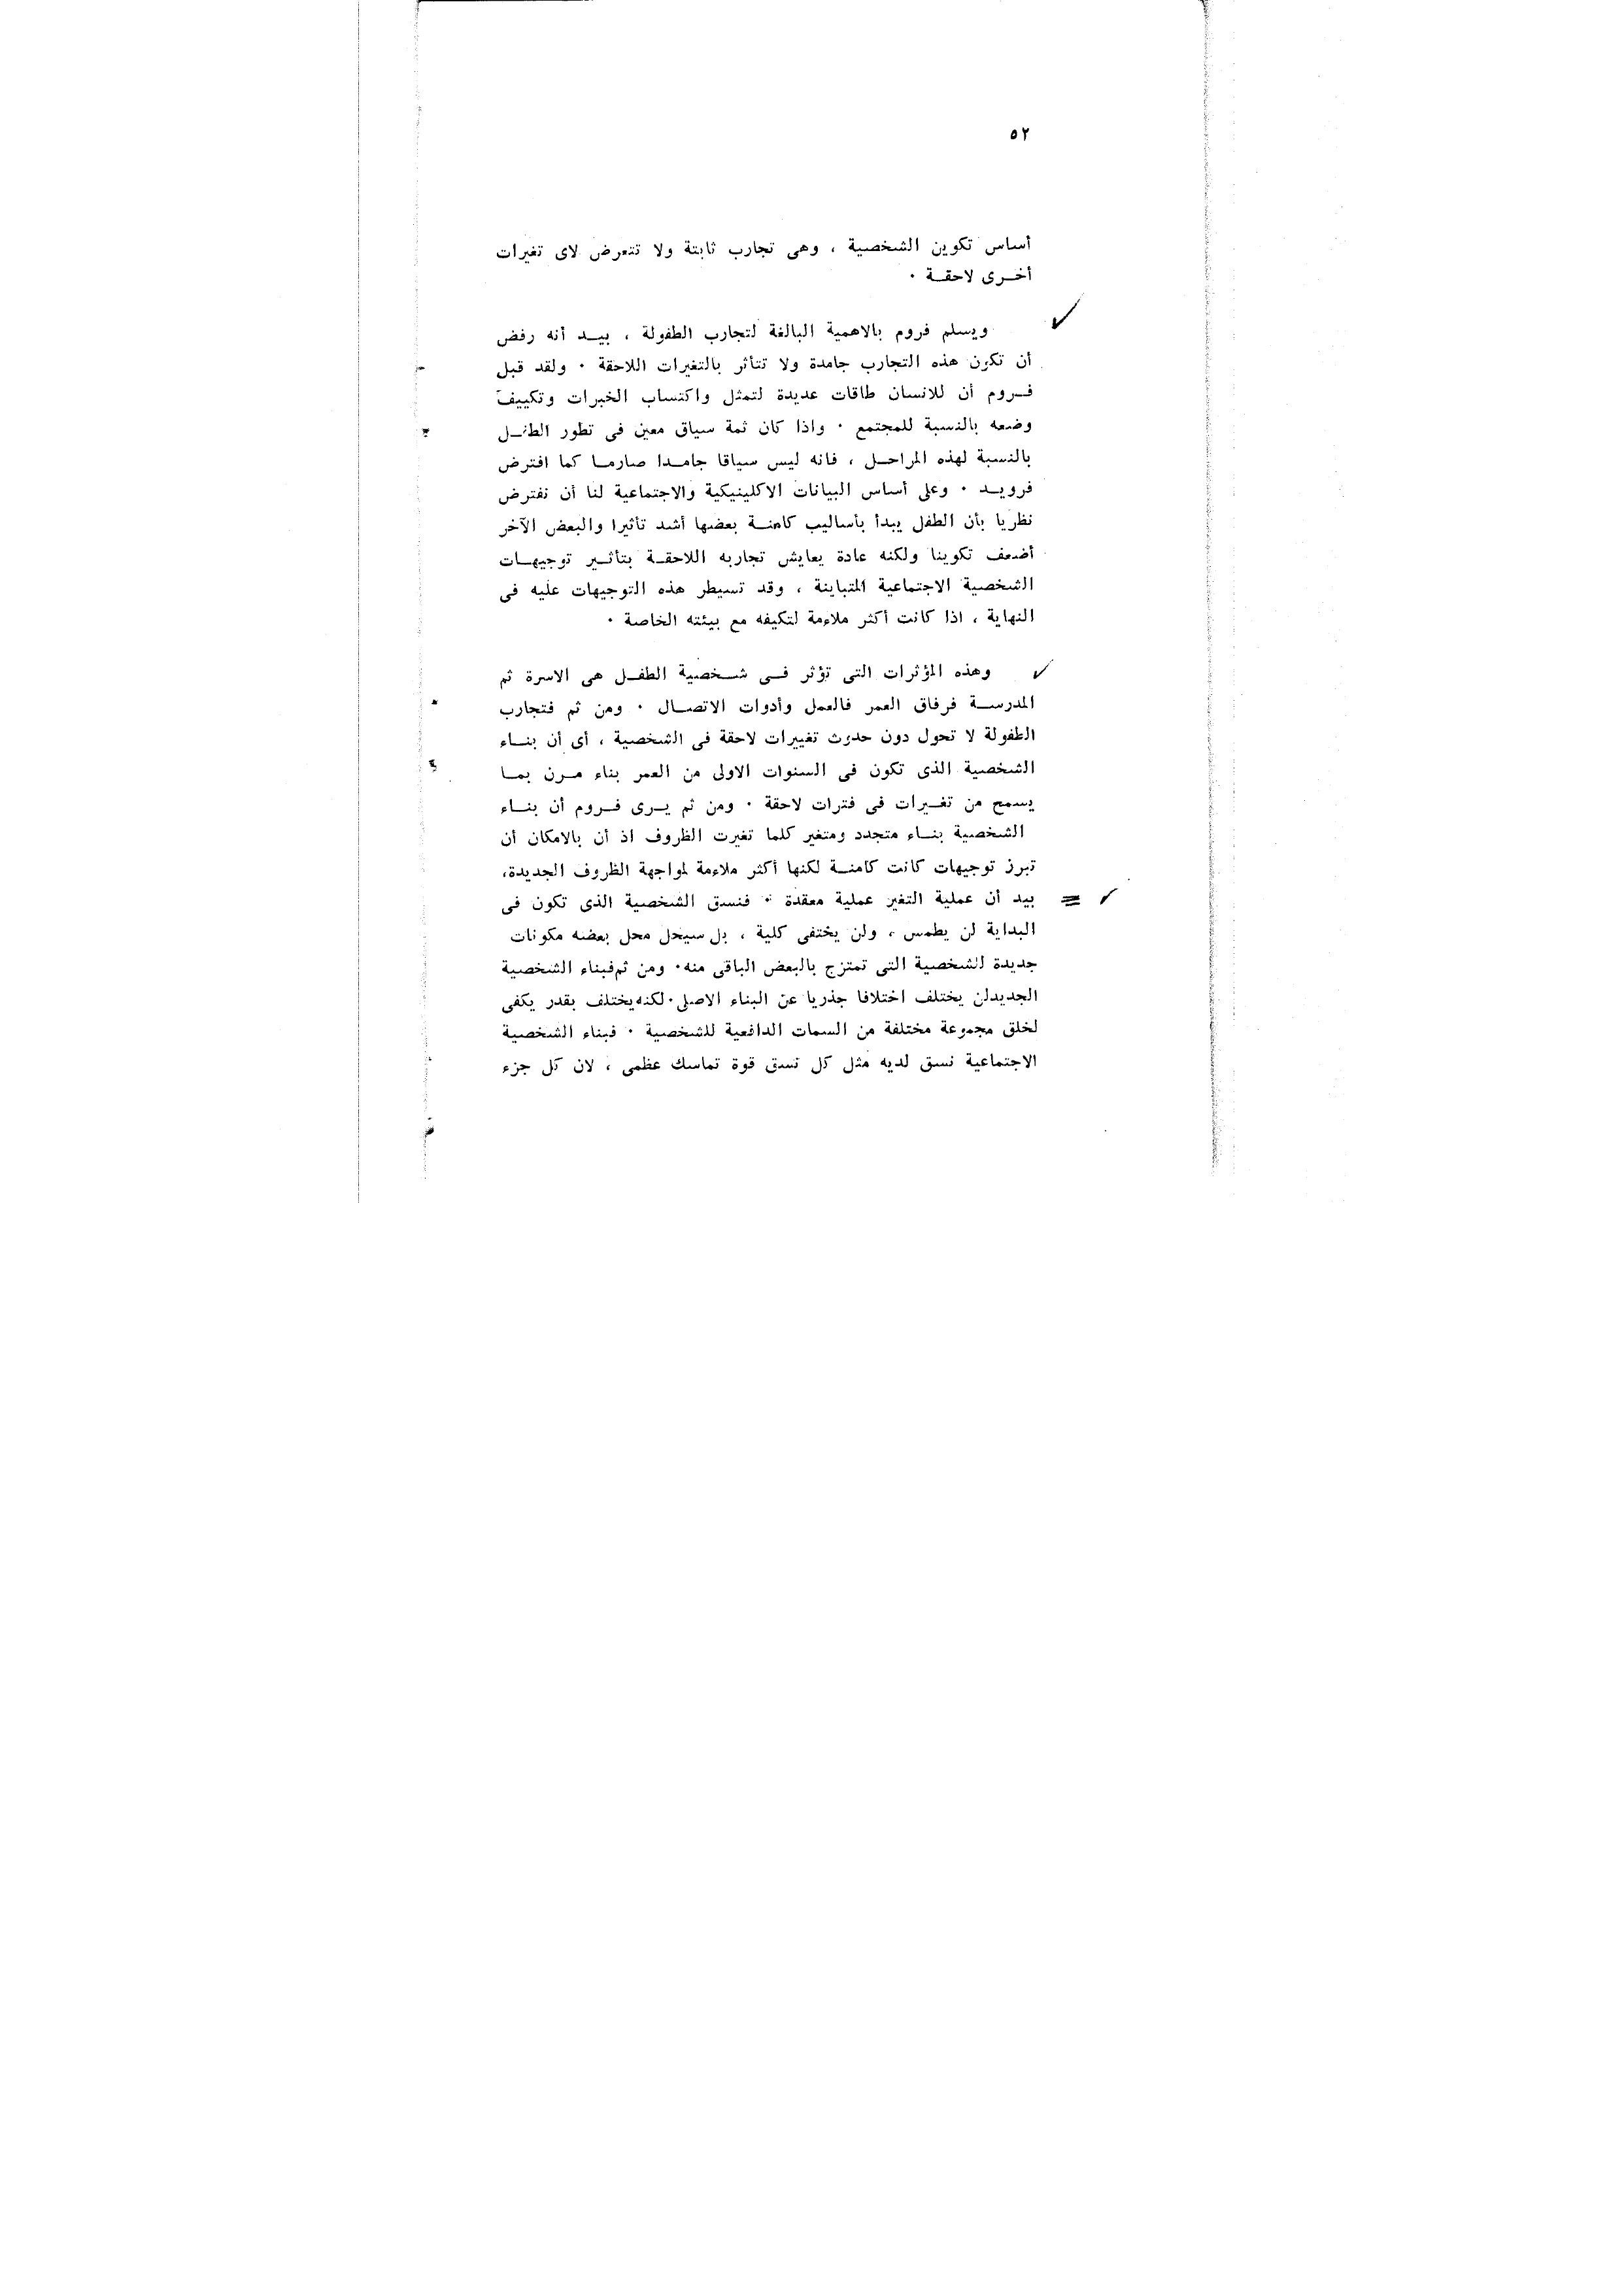 ٥٢
أساس تكوين الشخصية ، وهى تجارب ثابتة ولا تتعرض لاى تغيرات
أخرى لاحقة ٠
ويسلم فروم بالاهمية البالغة لتجارب الطفولة ، بيد أنه رفض
أن تكون هذه التجارب جامدة ولا تتأثر بالتغيرات اللاحقة ٠ ولقد قبل
فروم أن للانسان طاقات عديدة لتمثل واكتساب الخبرات وتكييف
وضعه بالنسبة للمجتمع ٠ واذا كان ثمة سياق معين فى تطور الطفل
بالنسبة لهذه المراحل ، فانه ليس سياقا جامدا صارما كما افترض
فرويد ٠ وعلى أساس البيانات الاكلينيكية والاجتماعية لنا أن نفترض
نظريا بأن الطفل يبدأ بأساليب كامنة بعضها أشد تأثيرا والبعض الآخر
أضعف تكوينا ولكنه عادة يعايش تجاربه اللاحقة بتأثير توجيهات
الشخصية الاجتماعية المتباينة ، وقد تسيطر هذه التوجيهات عليه فى
النهاية ، اذا كانت أكثر ملاءمة لتكيفه مع بيئته الخاصة ٠
وهذه المؤثرات التى تؤثر فى شخصية الطفل هى الاسرة ثم
المدرسة فرفاق العمر فالعمل وأدوات الاتصال ٠ ومن ثم فتجارب
الطفولة لا تحول دون حدوث تغييرات لاحقة فى الشخصية ، أى أن بناء
الشخصية الذى تكون فى السنوات الاولى من العمر بناء مرن بما
يسمح من تغيرات فى فترات لاحقة ٠ ومن ثم يرى فروم أن بناء
الشخصية بناء متجدد ومتغير كلما تغيرت الظروف اذ أن بالامكان أن
تبرز توجيهات كانت كامنة لكنها أكثر ملاءمة لمواجهة الظروف الجديدة،
بيد أن عملية التغير عملية معقدة ٠ فنسق الشخصية الذى تكون فى
البداية لن يطمس ، ولن يختفى كلية ، بل سيحل محل بعضه مكونات
جديدة للشخصية التى تمتزج بالبعض الباقى منه٠ ومن ثم فبناء الشخصية
الجديدلن يختلف اختلافا جذريا عن البناء الاصلى٠ لكنه يختلف بقدر يكفى
لخلق مجموعة مختلفة من السمات الدافعية للشخصية ٠ فبناء الشخصية
الاجتماعية نسق لديه مثل كل نسق قوة تماسك عظمى ، لان كل جزء